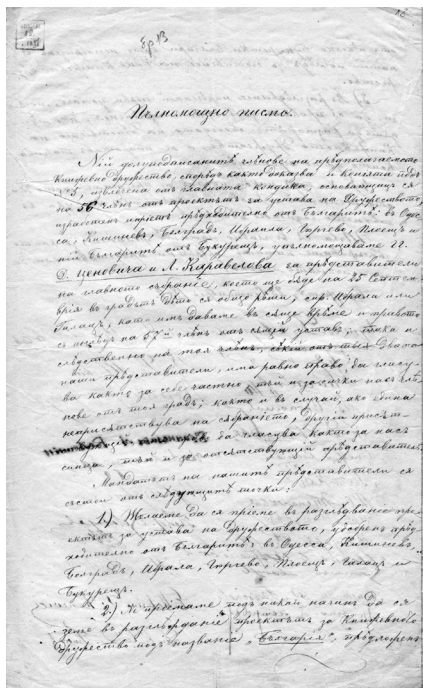 Ер 13
Пълномощно писмо.
Ний долуподписанитѣ членове на прѣдполагаемото
Книжевно дружество, споредъ както доказва и копията подъ
№ 5, извлечена отъ главната кондика, основающи ся
на 56 членъ отъ проектътъ за устава на Дружеството,
изработенъ прѣдварително отъ Българитѣ въ Оде-
са, Кишиневъ, Болградъ, Ибраила, Гюргево, Плоещъ и
ний Българитѣ отъ Букурещъ, упълномощаваме гг.
Д. Ценовича и Л. Каравелова за прѣдставители
на главното събрание, което ще бѫде на 25 Септем-
врия въ градътъ дѣто ся общо рѣши, спр. Ибраила или
Галацъ, като имъ даваме въ сѫщо врѣме и правото
съ силата на 57й членъ отъ сѫщий уставъ; тъка и
слѣдственно на тоя членъ, сѣкой отъ тыя двама
наши прѣдставители, има равно право да гласу-
ва какъ за себе частно тъй и за сички насъ чле-
нове отъ тоя градъ; както и въ случай, ако едина
неприсѫтствува на събранието, другий присѫт-
да гласува както за насъ
синца, тъй и за отсѫтствующий прѣдставитель.
Мандатътъ на нашитѣ прѣдставители ся
състои отъ слѣдующитѣ точки:
1.) Желаете да ся приеме въ разглѣдвание про-
ектътъ за устава на Дружеството, удобренъ прѣд-
варително отъ Българитѣ въ Одесса, Кишиневъ,
Болградъ, Ибраила, Гюргево, Плоещъ, Галацъ и
Букурещъ.
2.) Не приемаме подъ никой начинъ да ся
земе въ разглѣждание проектътъ за Книжевното
Дружество подъ название „България“, прѣдложенъ